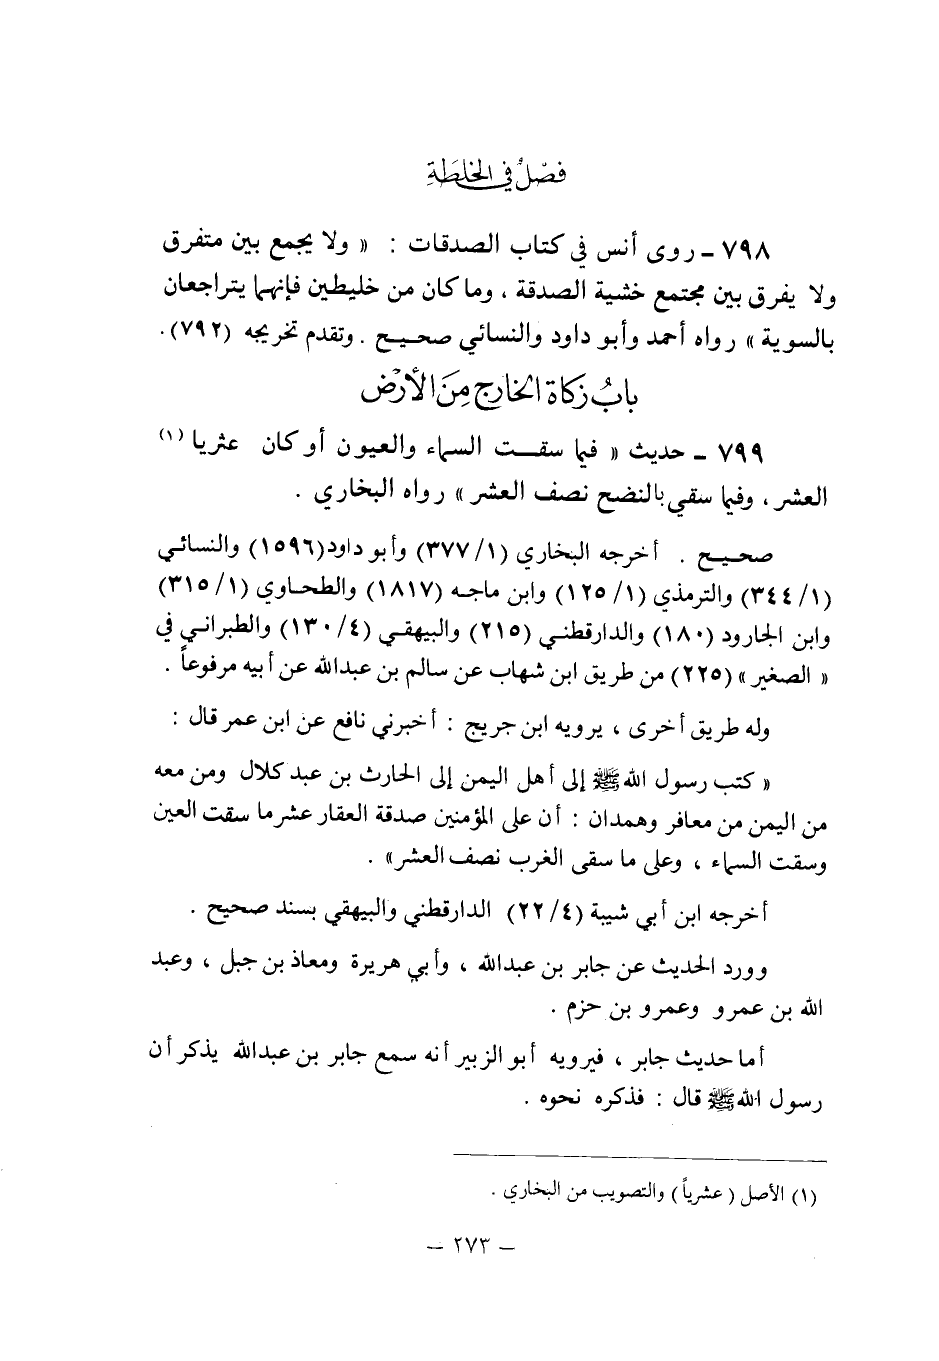 فصْلُ في الخلطَةِ
٧٩٨ ــ روى أنس في كتاب الصدقات : « ولا يجمع بين متفرق
ولا يفرق بين مجتمع خشية الصدقة ، وما كان من خليطين فإنهما يتراجعان
بالسوية » رواه أحمد وأبو داود والنسائي صحيح . وتقدم تخريجه (٧٩٢).
بابُ زكاة الخارج مِنَ الأرْض
٧٩٩ ــ حديث « فيما سقت السماء والعيون أو كان عثريا (١)
العشر ، وفيما سقي بالنضح نصف العشر » رواه البخاري .
صحيح . أخرجه البخاري (١/ ٣٧٧) وأبو داود(١٥٩٦) والنسائي
(١/ ٣٤٤) والترمذي (١/ ١٢٥) وابن ماجه (١٨١٧) والطحاوي (١/ ٣١٥)
وابن الجارود (١٨٠) والدارقطني (٢١٥) والبيهقي (٤/ ١٣٠) والطبراني في
« الصغير » (٢٢٥) من طريق ابن شهاب عن سالم بن عبدالله عن أبيه مرفوعاً .
وله طريق أخرى ، يرويه ابن جريج : أخبرني نافع عن ابن عمر قال :
« كتب رسول الله ﷺ إلى أهل اليمن إلى الحارث بن عبد كلال ومن معه
من اليمن من معافر وهمدان : أن على المؤمنين صدقة العقار عشر ما سقت العين
وسقت السماء ، وعلى ما سقى الغرب نصف العشر» .
أخرجه ابن أبي شيبة (٤/ ٢٢) الدارقطني والبيهقي بسند صحيح .
وورد الحديث عن جابر بن عبدالله ، وأبي هريرة ومعاذ بن جبل ، وعبد
الله بن عمرو وعمرو بن حزم .
أما حديث جابر ، فيرويه أبو الزبير أنه سمع جابر بن عبدالله يذكر أن
رسول الله ﷺ قال : فذكره نحوه .
(١) الأصل ( عشرياً ) والتصويب من البخاري .
– ٢٧٣ –